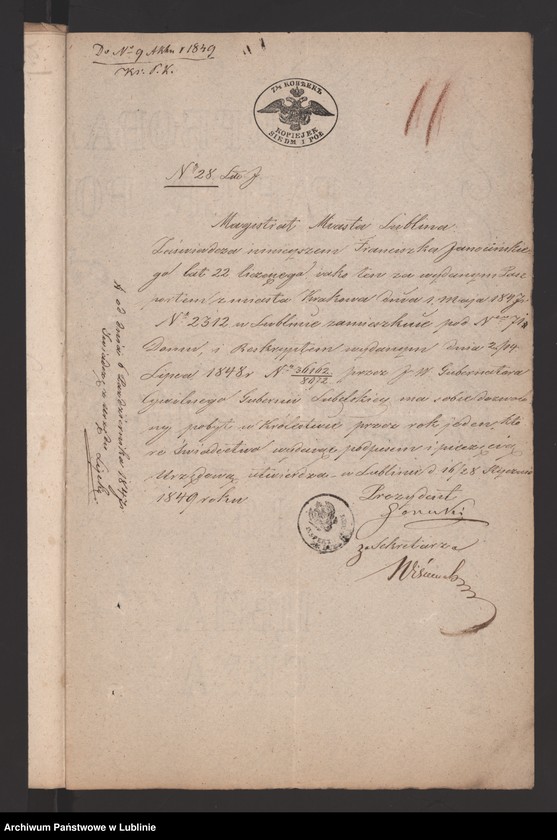 Do No 9 Aktu r 1849
7½ КОПѢЕКЪ
KOPIEJEK
SIEDM I PÓŁ
No 28 Lit J
Magistrat Miasta Lublina
Zaświadcza niniejszem Franciszka
go lat 22 liczącego jako ten za wydanym Pas
portem z miasta Krakowa dnia 1 Maja 1847 r
No 2312 w Lublinie zamieszkuje pod Nrem 718
Domu, i Reskryptem wydanym dnia 2/14
Lipca 1848 r No 36162/8972 przez J W Gubernatora
Cywilnego Gubernii Lubelskiej ma sobie dozwolo
ny pobyt w Królestwie przez rok jeden któ
re świadectwo wydając podpisem i pieczęcią
Urzędową stwierdza w Lublinie d 16/28 Stycznia
1849 roku
Prezydent
za Sekretarza
A od dnia 6 Października 1847 r
Archiwum Państwowe w Lublinie